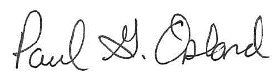 Paul G. Osland